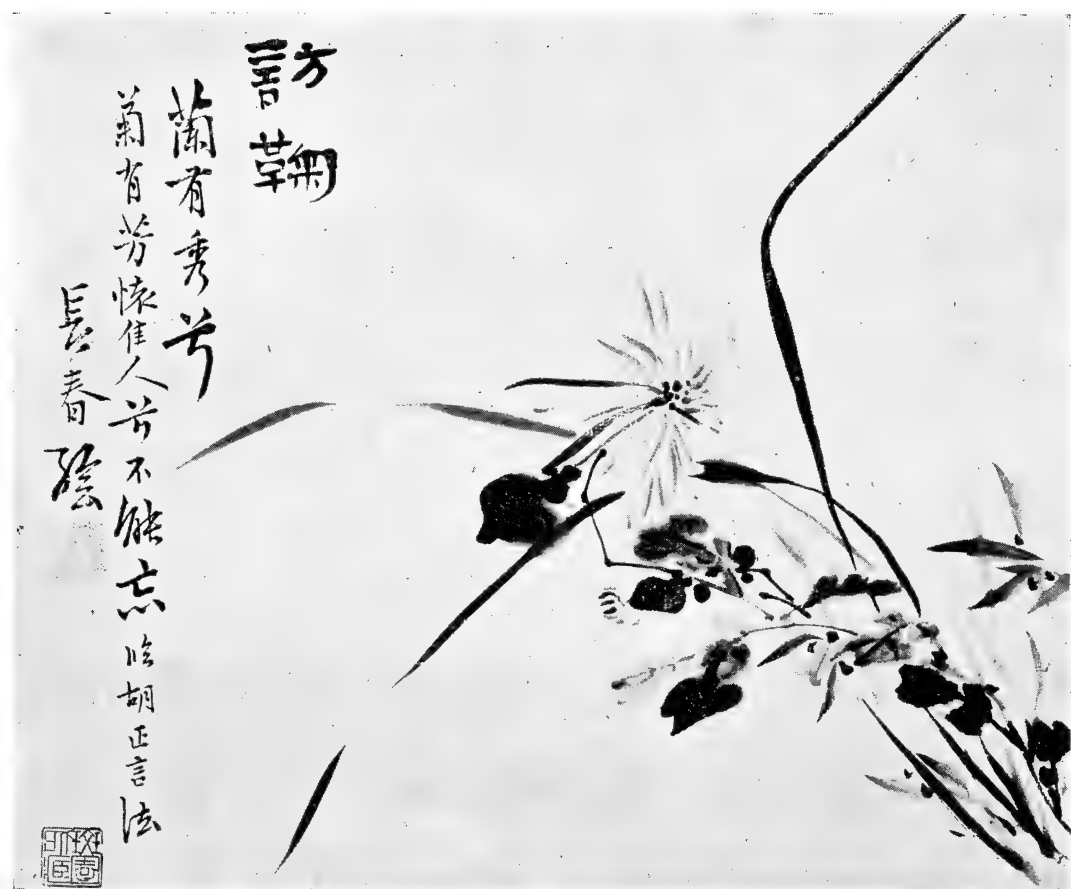 訪鞠
蘭有秀兮
菊有芳懷佳人兮不能忘臨胡正言法
長春繪